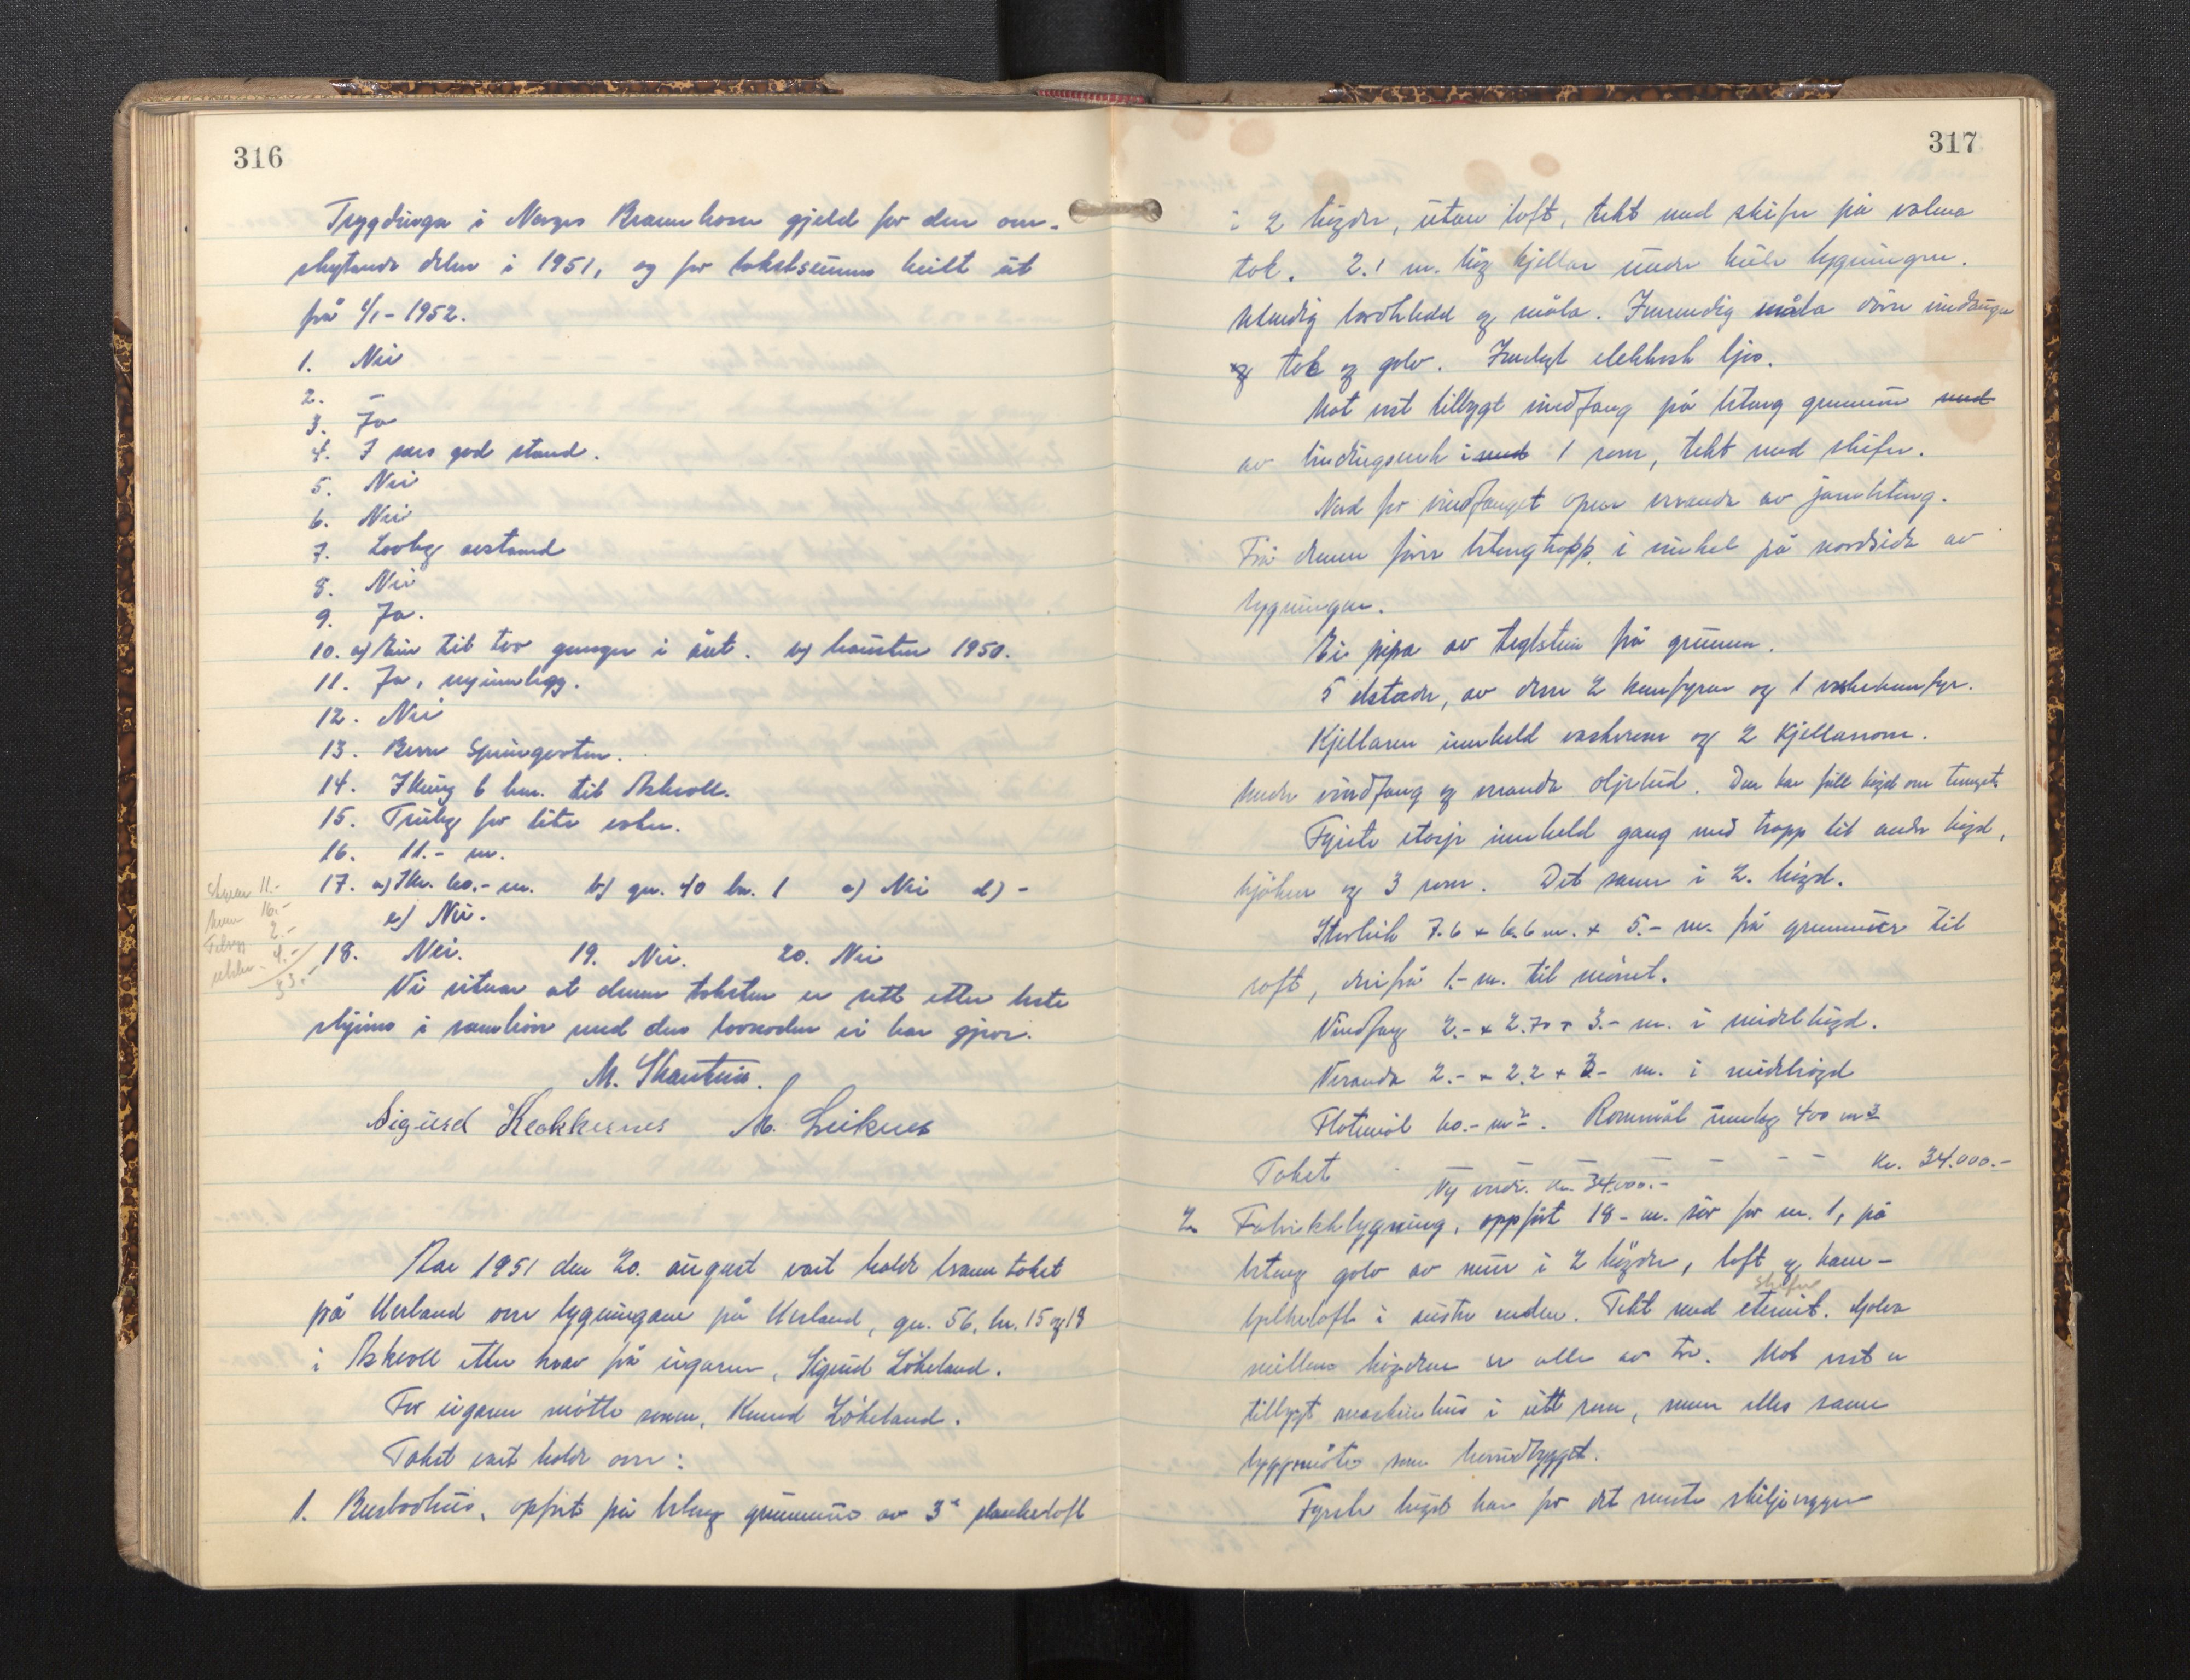 316
Trygdinga i Norges Brannkasse gjeld for den om-
skytande delen i 1951, og for takstsummen heilt ut
frå 1/1 - 1952.
1. Nei
2. –
3. Ja
4. I god stand.
5. Nei
6. Nei
7. Lovleg avstand
8. Nei
9. Ja.
10. a) Ein til tvo gonger i året. b) hausten 1950.
11. Ja, .
12. Nei
13. Berre Springvatn.
14. Ikring 6 km. til Askvoll.
15. Truleg for lite vatn.
16. 11.- m.
17. a) Ikr. 60.- m. b) gn. 40 bn. 1 c) Nei d) -
e) Nei.
18. Nei. 19. Nei. 20. Nei
11.-
16.-
2.-
4.-
33.-
Vi vitnar at denne taksten er sett etter beste
skjøna i samhøve med den lovnaden vi har gjeve.
M. Skarstein.
Sigurd M. Leiknes
Aar 1951 den 20. august vart halde branntakst
på Herland over bygningane på Herland, gn. 56, bn. 15 og 18
i Askvoll etter krav frå eigaren, Sigurd Løkeland.
For eigaren møtte sonen, Knud Løkeland.
Takst vart halde over:
1. Bustadhus, oppført på betong grunnmur av 3" plankeloft
317
i 2 høgder, utan loft, tekt med skifer på valma
tak. 2.1 m. høg kjellar under heile bygningen.
Utvendig bordkledd og måla. Innvendig måla dører vindauga
og tak og golv. Innlagt elektrisk ljos.
Mot vest tilbygt vindfang på betong grunnmur med
av bindingsverk i med 1 rom, tekt med skifer.
Nord for vindfanget open veranda av jarnbetong.
Frå denne fører betongtropp i vinkel på nordsida av
bygningen.
Ei pipa av teglstein frå grunnen.
5 eldstader, av desse 2 komfyrar og 1 vaskekomfyr.
Kjellaren inneheld vaskerom og 2 kjellarrom.
Under vindfang og veranda oljebud. Den har full høgd om
Fyrste etasje inneheld gang med tropp til andre høgd,
kjøken og 3 rom. Det same i 2. høgd.
Storleik 7.6 x 6.6 m. x 5.- m. frå grunnmur til
loft, derifrå 1.- m. til mønet.
Vindfang 2.- x 2.70 x 3.- m. i middelhøgd.
Veranda 2.- x 2.2 x 3.- m. i middelhøgd
Flatemål 60.- m². Rommål umlag 400 m³
Takst – – – – – – – – kr. 34.000.-
Ny verdi. kr. 34.000.-
2. Fabrikkbygning, oppført 18.- m. sør for nr. 1, på
betong golv av mur i 2 høgder, loft og ham-
bjelkeloft i austre enden. Tekt med eternit. Golva
skifer
millom høgdene er alle av tre. Mot vest er
tilbygt maskinhus i eitt rom, men elles same
byggemåte som hovudbygget.
Fyrste høgd har for det meste skiljevegger